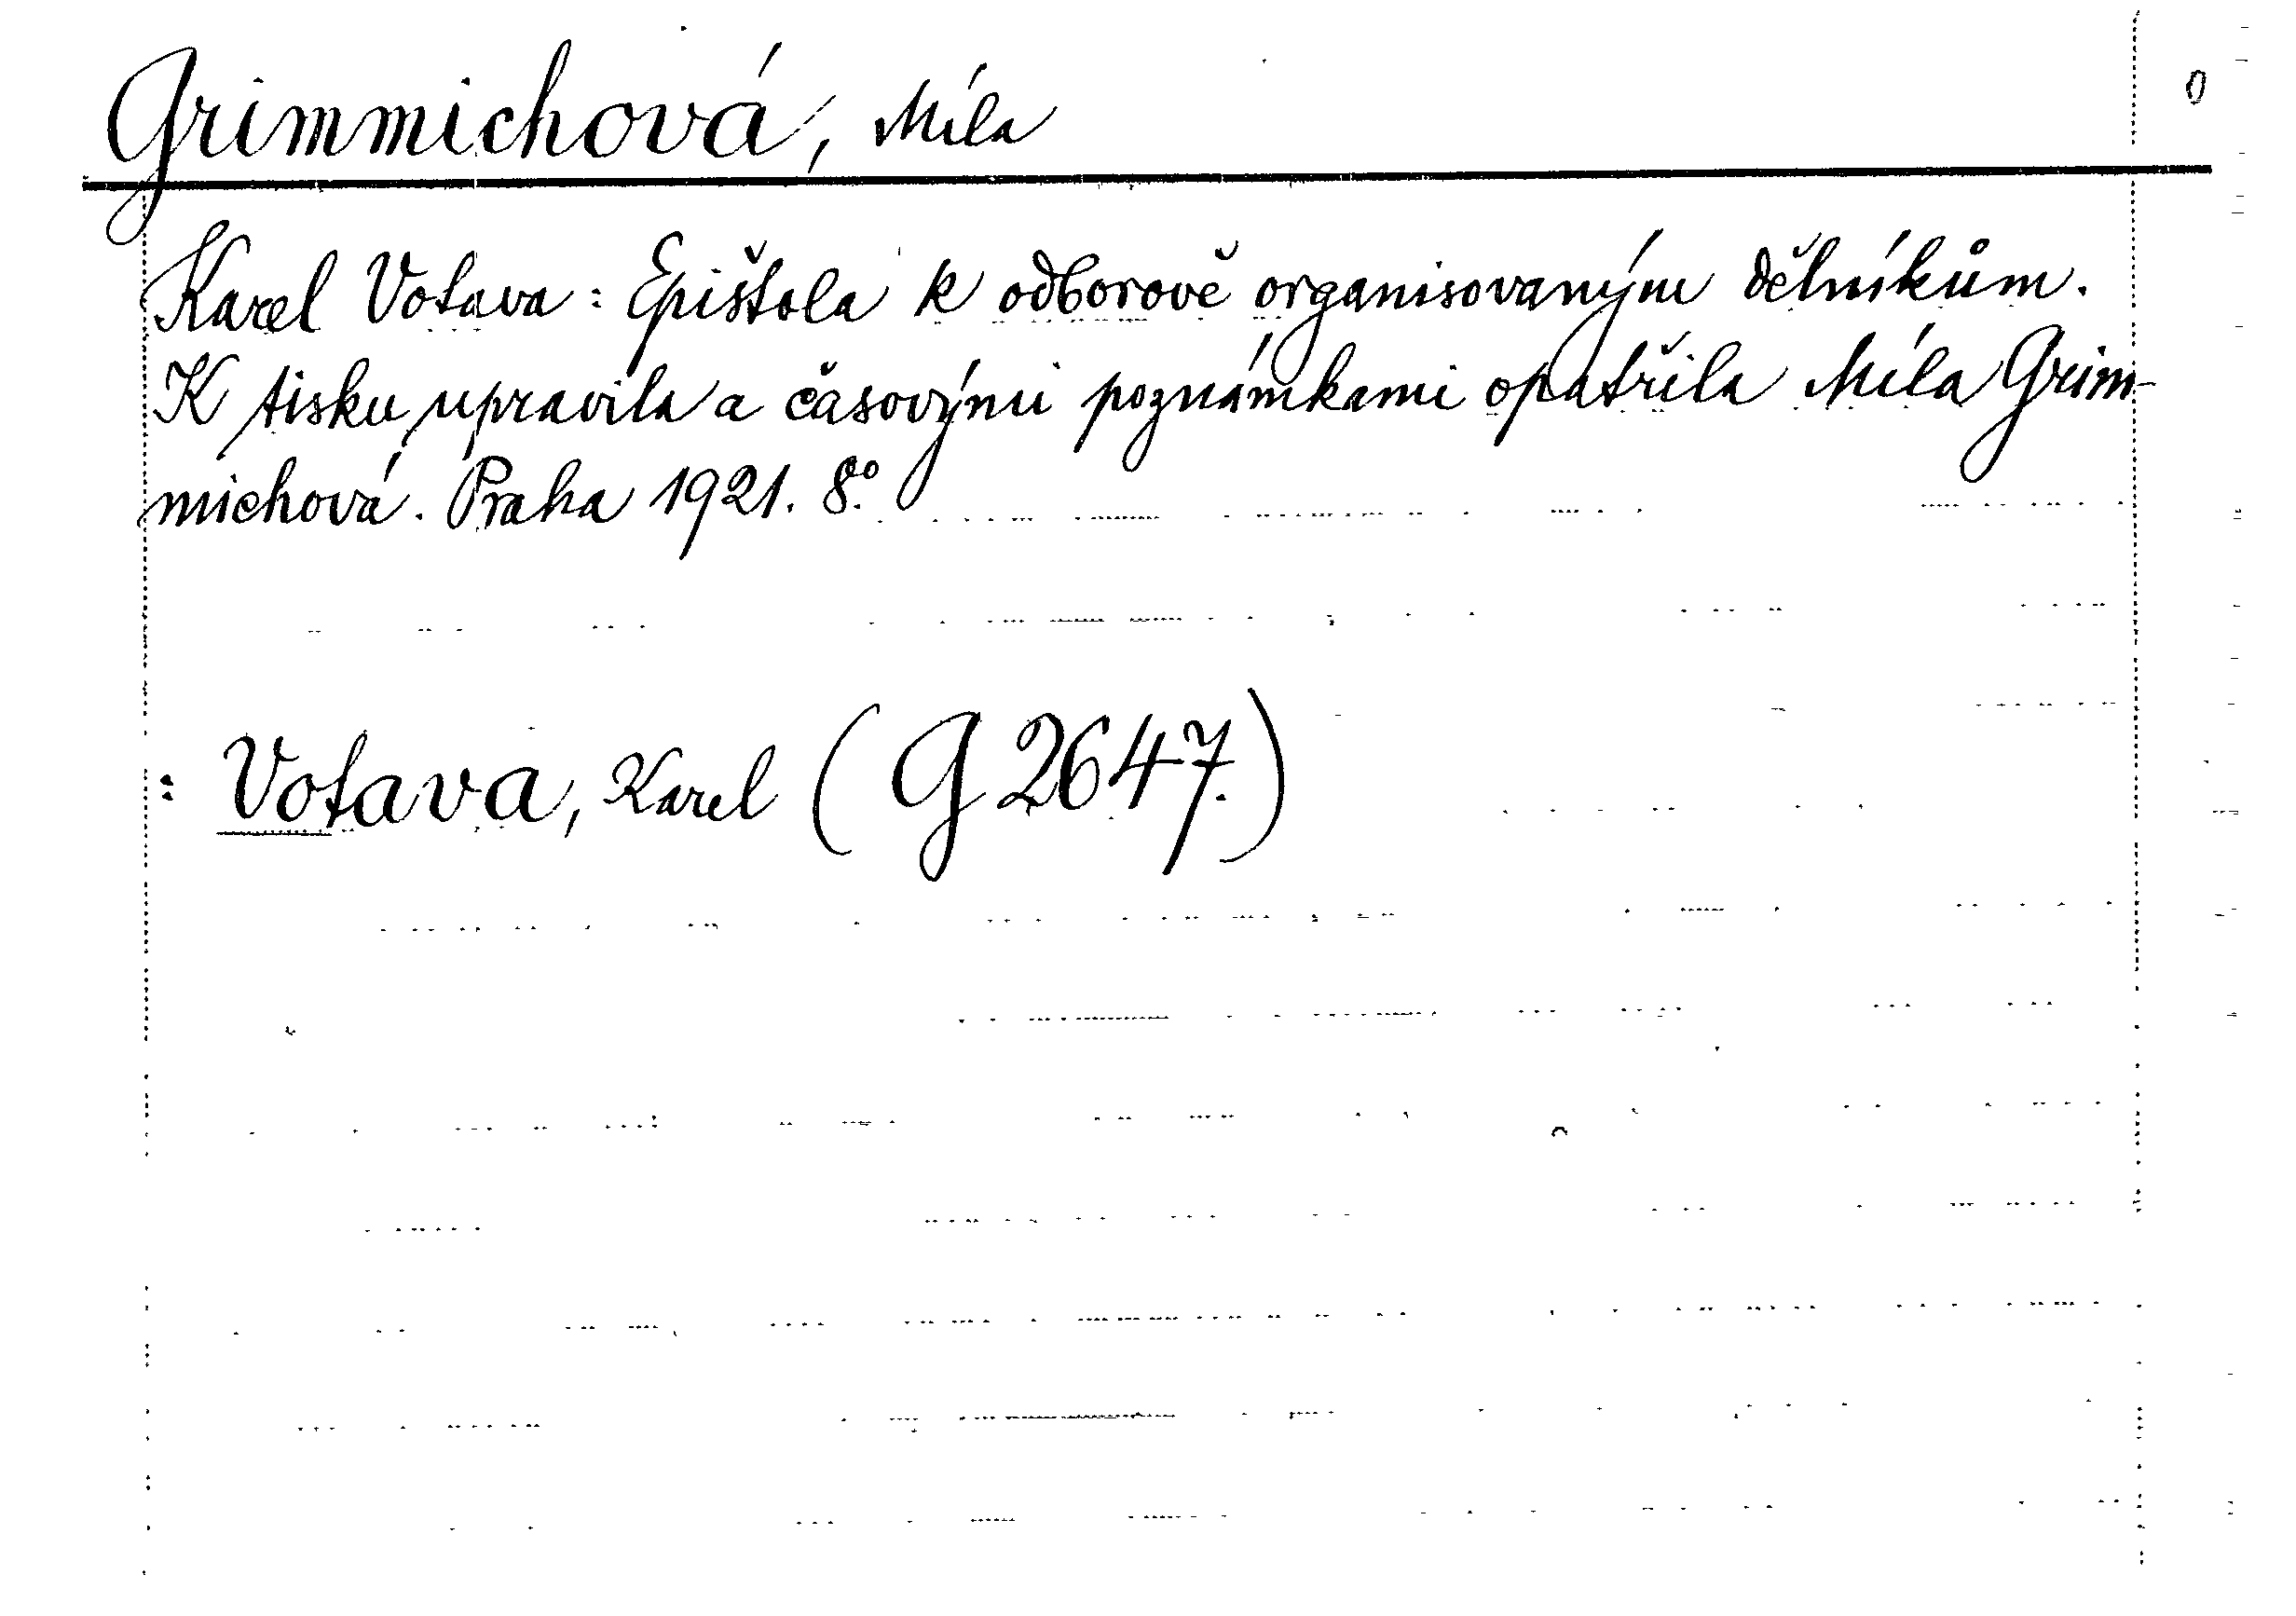 Grimmichová, Míla
Karel Votava: Epištola k odborově organisovaným dělníkům.
K tisku upravila a časovými poznámkami opatřila Míla Grim-
michová. Praha 1921. 8°.
: Votava, Karel (G 2647.)